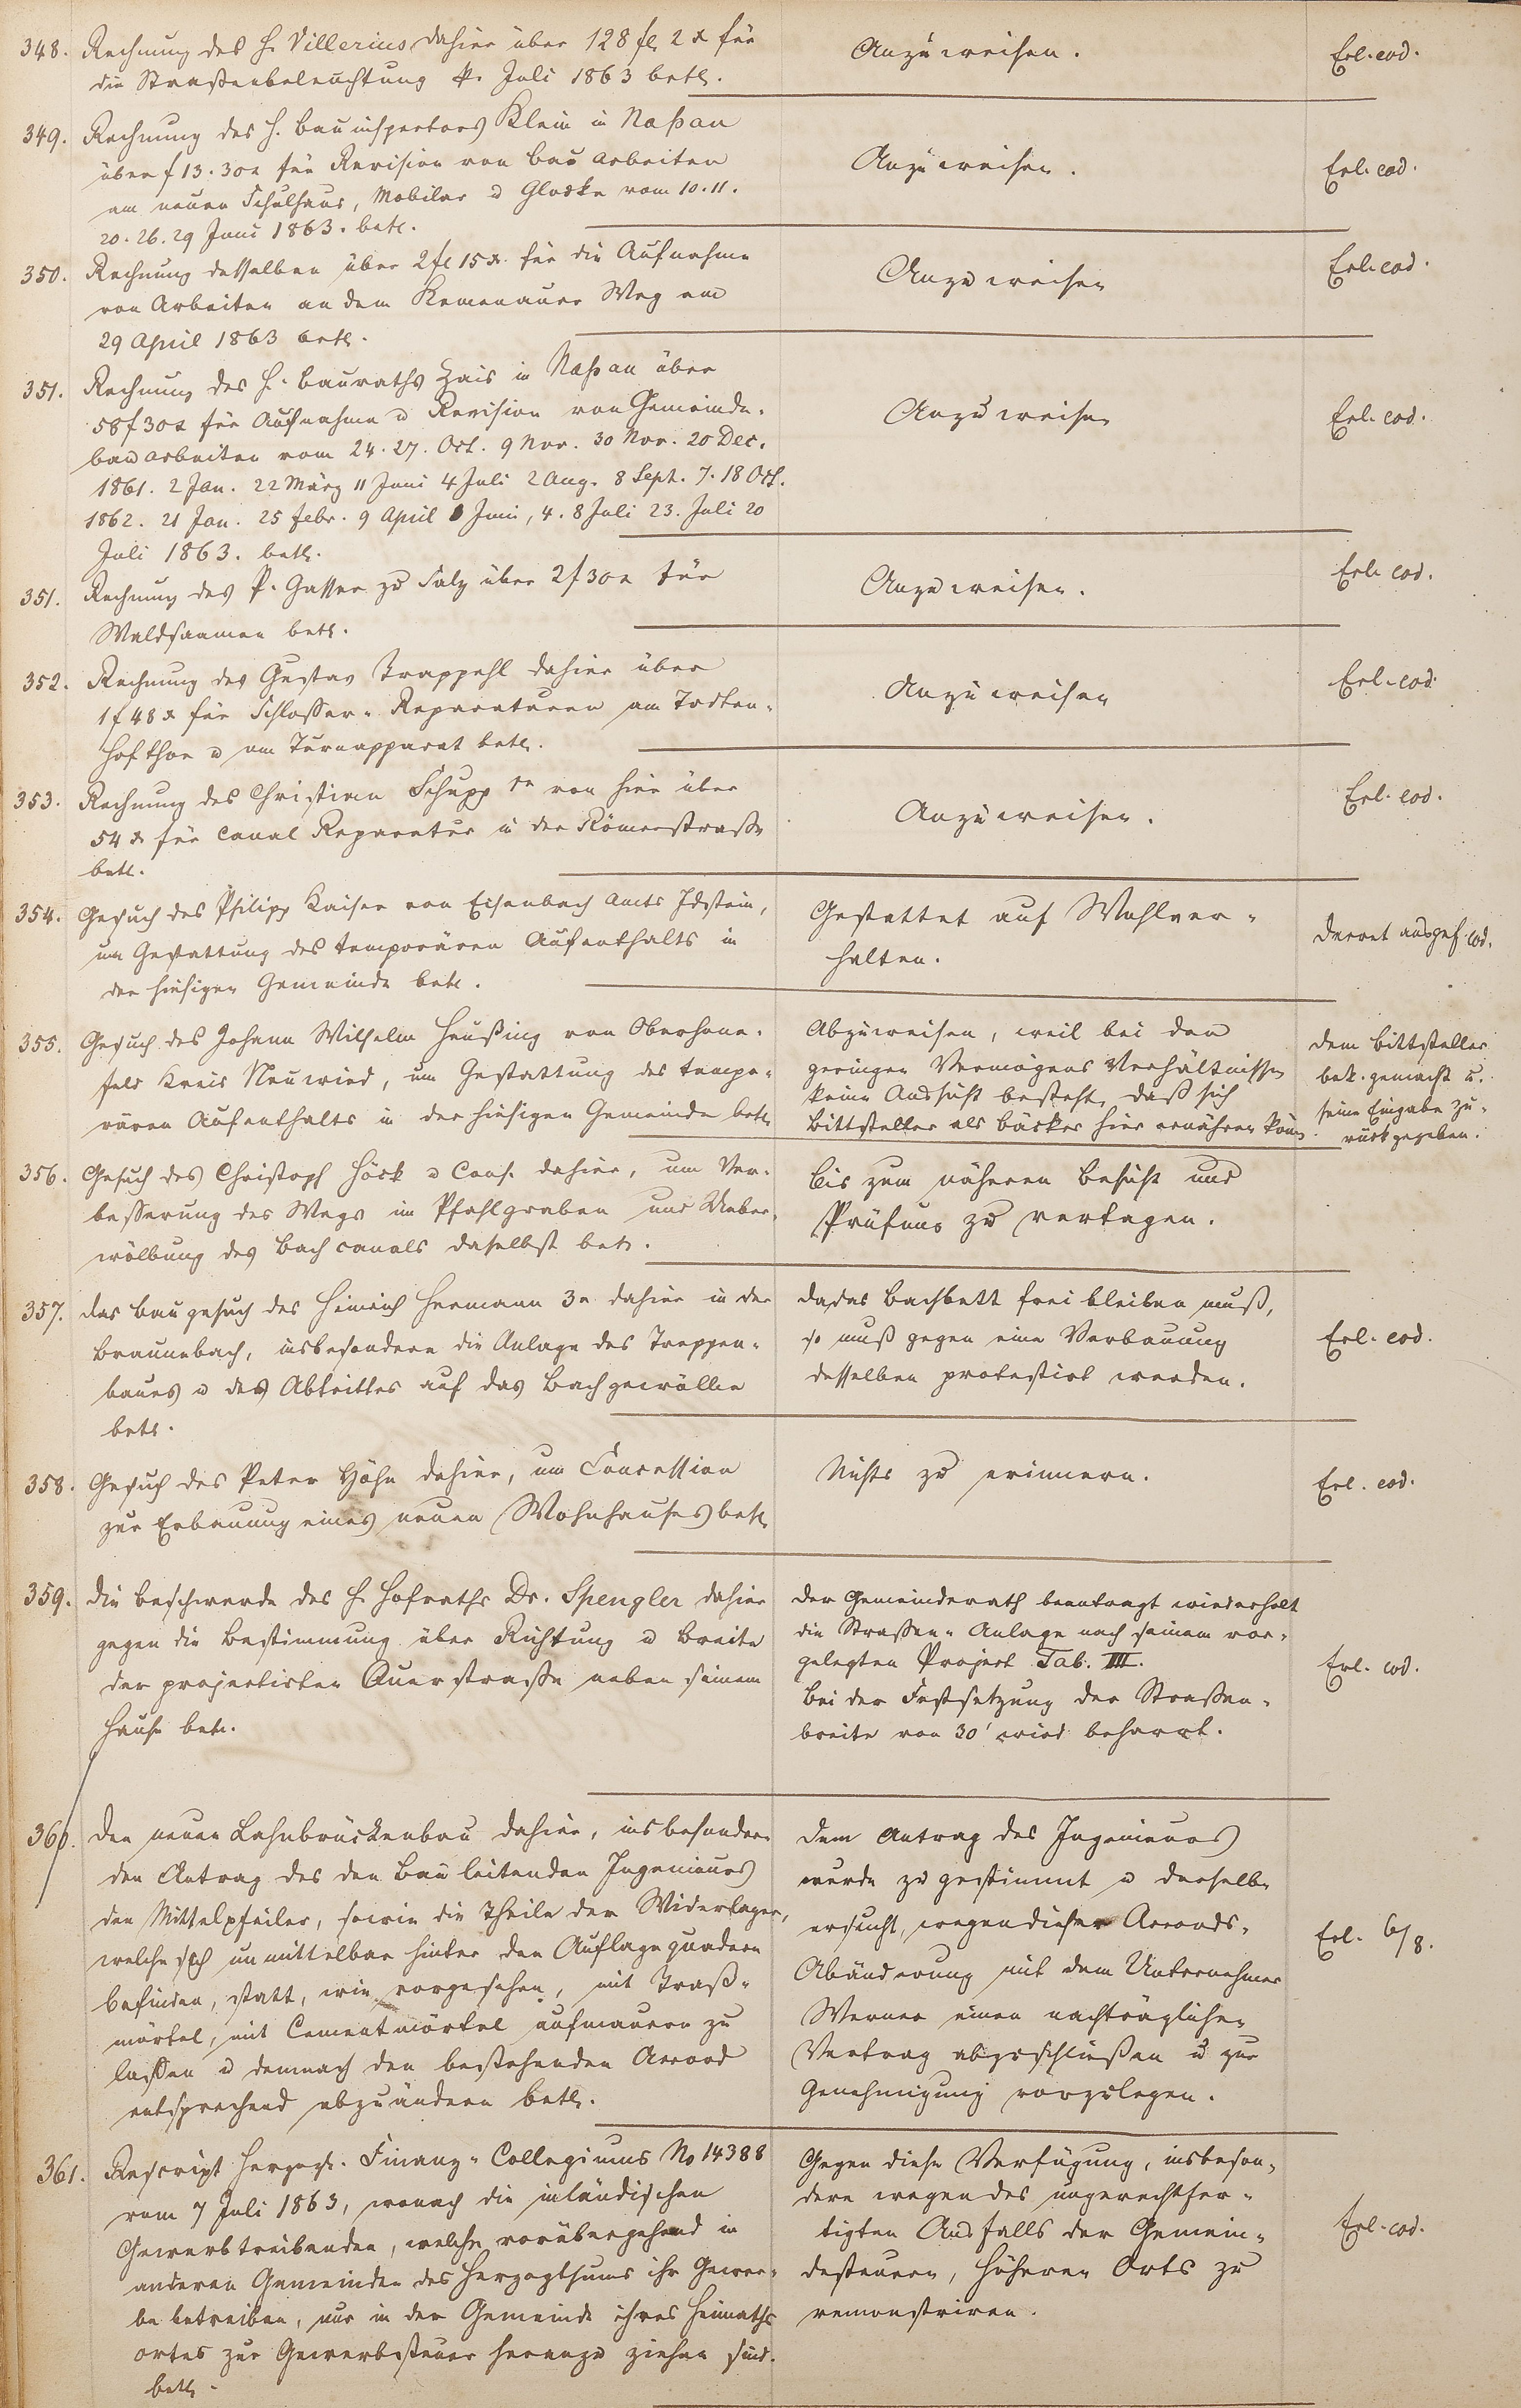 348. Rechnung des H. Villerius dahier über 128 fl 2 x für
die Straßenbeleuchtung p. Juli 1863 betr.
Anzuweisen.
Erl. eod.
349. Rechnung des H. Bauinspectors Klein in Naßau
über f 13. 30 x für Revision von Bauarbeiten
am neuen Schulhaus, Mobilar u Glocke vom 10. 11.
20. 26. 29 Juni 1863. betr.
Anzuweisen.
Erl. eod.
350. Rechnung desselben über 2 fl 15 x. für die Aufnahme
von Arbeiten an dem Kemenauer Weg am
29 April 1863 betr.
Anzuweisen
Erl. eod.
351. Rechnung des H. Bauraths Hais in Naßau über
58 f 30 x für Aufnahme u Revision von Gemeinde-
bauarbeiten vom 24. 27. Oct. 9 Nov. 30 Nov. 20 Dec.
1861. 2 Jan. 22 März 11 Juni 4 Juli 2 Aug. 8 Sept. 7. 18 Oct.
1862. 21 Jan. 25 Febr. 9 April Juni, 4. 8 Juli 23. Juli 20
Juli 1863. betr.
Anzuweisen
Erl. eod.
351. Rechnung des P. Gasser zu Salz über 2 f 30 x für
Waldsaamen betr.
Anzuweisen.
Erl. eod.
352. Rechnung des Gustav Trappehl dahier über
1 f 48 x für Schlosser-Reparaturen am Todten-
hofthor u am Turnapparat betr.
Anzuweisen
Erl. eod.
353. Rechnung des Christian Schupp von hier über
54 x für Canal Reparatur in der Römerstraße
betr.
Anzuweisen.
Erl. eod.
354. Gesuch des Philipp Kaiser von Eisenbach Amts Idstein,
um Gestattung des temporären Aufenthalts in
der hiesigen Gemeinde betr.
Gestattet auf Wohlver-
halten.
Decret ausgef. eod.
355. Gesuch des Johann Wilhelm Heußing von Oberhone-
feld Kreis Neuwied, um Gestattung des tempo-
rären Aufenthalts in der hiesigen Gemeinde betr
Abzuweisen, weil bei den
geringen Vermögens Verhältnissen
keine Aussicht besteht, daß sich
Bittsteller als Bäcker hier ernähren könne.
Dem Bittsteller
bek. gemacht u.
seine Eingabe zu-
rückgegeben.
356. Gesuch des Christoph Höck u Cons. dahier, um Ver-
besserung des Wegs im Pfahlgraben und Ueber-
wölbung des Bachcanals daselbst betr.
Bis zum näheren Besicht und
Prüfung zu vertagen.
357. Das Baugesuch des Heinrich Hermann 3r dahier in der
Braunebach, insbesondere die Anlage des Treppen-
baues u des Abtrittes auf das Bachgewölbe
betr.
Da das Bachbett frei bleiben muß,
so muß gegen eine Verbauung
desselben protestirt werden.
Erl. eod.
358. Gesuch des Peter Höhn dahier, um Concession
zur Erbauung eines neuen Wohnhauses betr
Nichts zu erinnern.
Erl. eod.
359. Die Beschwerde des H. Hofraths Dr. Spengler dahier
gegen die Bestimmung über Richtung u Breite
der projectirten Querstraße neben seinem
Hause betr.
Der Gemeinderath beantragt wiederholt
die Straßen-Anlage nach seinem vor-
gelegten Project Tab. IIII.
Bei der Festsetzung der Straßen-
breite von 30' wird beharrt.
Erl. eod.
360. Den neuen Lahnbrückenbau dahier, insbesondere
den Antrag des den Bau leitenden Ingenieurs
den Mittelpfeiler, sowie die Theile der Widerlager,
welche sich unmittelbar hinter den Auflagequadern
befinden, statt, wie vorgesehen, mit Traß-
mörtel, mit Cementmörtel aufmauern zu
lassen u demnach den bestehenden Accord
entsprechend abzuändern betr.
Dem Antrag des Ingenieurs
wurde zugestimmt u derselbe
ersucht, wegen dieser Accords-
Abänderung mit dem Unternehmer
Werner einen nachträglichen
Vertrag abzuschließen u zur
Genehmigung vorzulegen.
Erl. 6/8.
361. Rescript Herzogl. Finanz-Collegiums No 14388
vom 7 Juli 1863, wonach die inländischen
Gewerbtreibenden, welche vorübergehend in
anderen Gemeinden des Herzogthums ihr Gewer-
be betreiben, nur in der Gemeinde ihres Heimaths
ortes zur Gewerbsteuer heranzu ziehen sind.
betr.
Gegen diese Verfügung, insbeson-
dere wegen des ungerechtfer-
tigten Ausfalls der Gemein-
desteuern, höheren Orts zu
remonstriren.
Erl. eod.